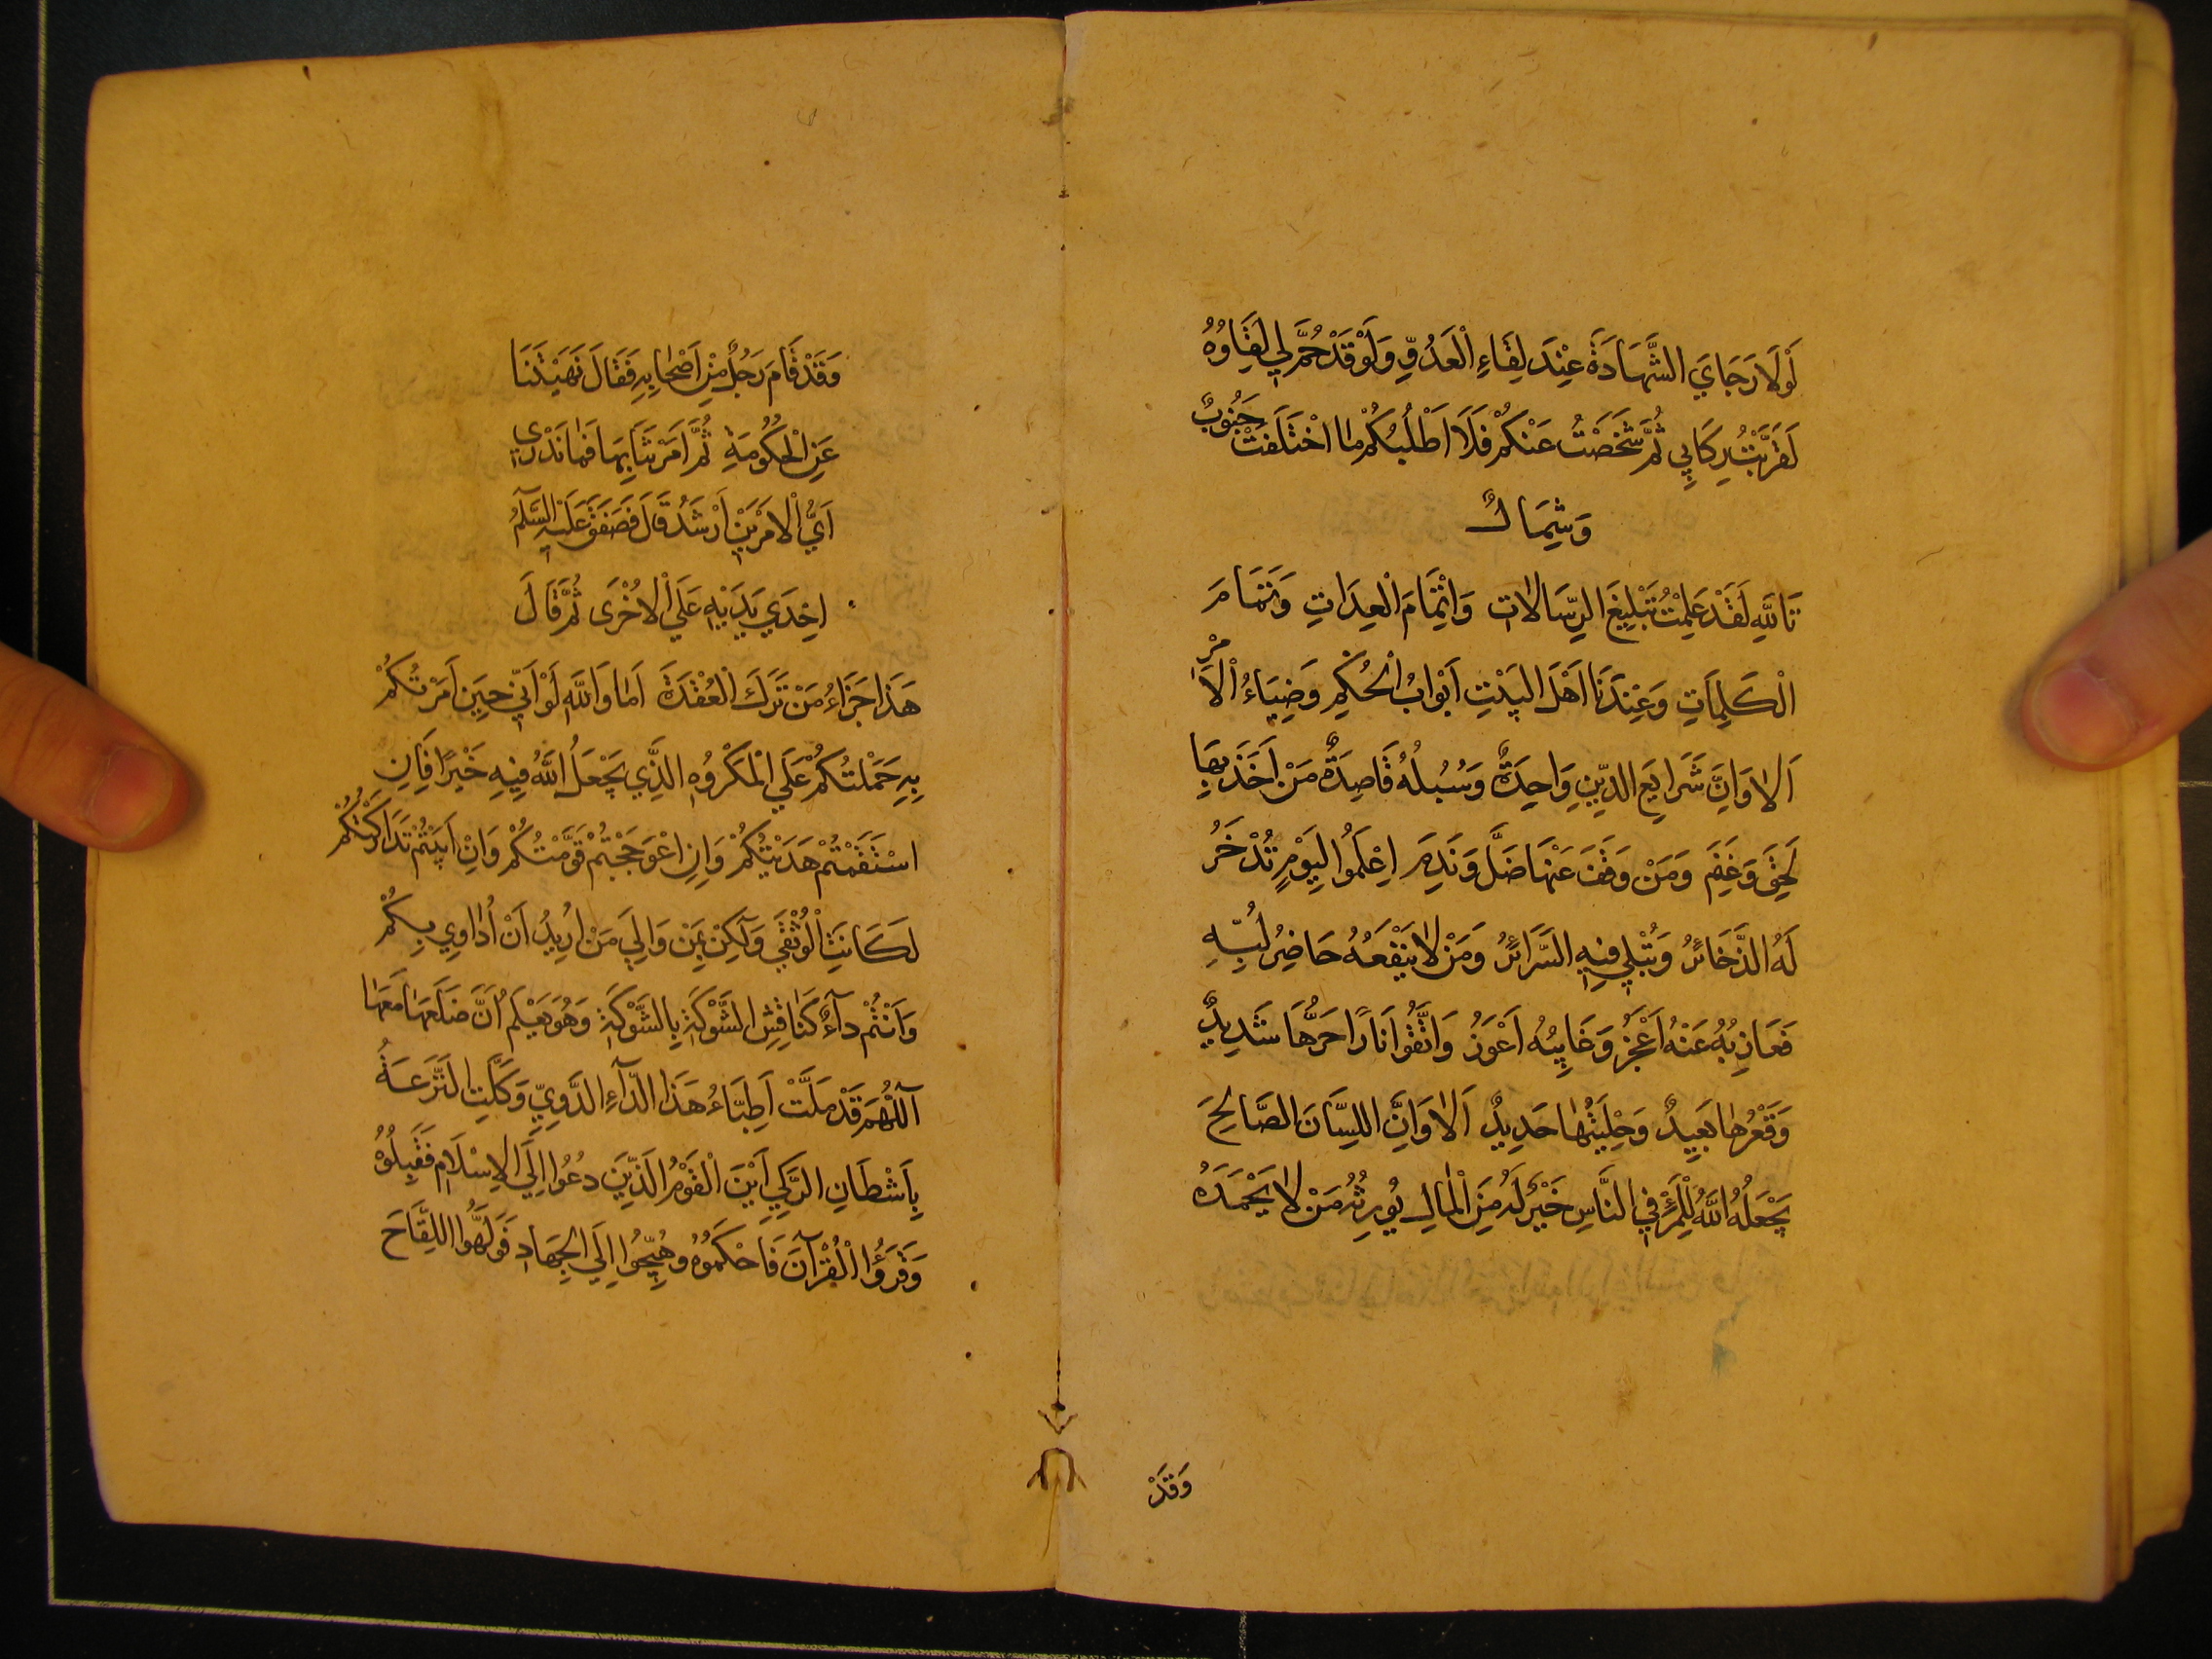 لَوْلَا رَجَايَ الشَّهَادَةَ عِنْدَ لِقَاءِ الْعَدُوِّ وَلَوْ قَدْ حُمَّ لِي لِقَاؤُهُ
لَقَرَّبْتُ رِكَابِي ثُمَّ شَخَصْتُ عَنْكُمْ فَلَا اَطْلُبُكُمْ مَا اخْتَلَفَتْ جَنُوبٌ
وَشِمَالٌ
تَاللهِ لَقَدْ عَلِمْتُ تَبْلِيغَ الرِّسَالَاتِ وَاِتْمَامَ الْعِدَاتِ وَتَمَامَ
الْكَلِمَاتِ وَعِنْدَنَا اَهْلَ الْبَيْتِ اَبْوَابُ الْحُكْمِ وَضِيَاءُ الْاَمْرِ
اَلَا وَاِنَّ شَرَايِعَ الدِّينِ وَاحِدَةٌ وَسُبُلُهُ قَاصِدَةٌ مَنْ اَخَذَ بِهَا
لَحِقَ وَغَنِمَ وَمَنْ وَقَفَ عَنْهَا ضَلَّ وَنَدِمَ اِعْمَلُوا لِيَوْمٍ تُذْخَرُ
لَهُ الذَّخَائِرُ وَتُبْلَي فِيهِ السَّرَائِرُ وَمَنْ لَا يَنْفَعُهُ حَاضِرُ لُبِّهِ
فَعَازِبُهُ عَنْهُ اَعْجَزُ وَغَايِبُهُ اَعْوَزُ وَاتَّقُوا نَارًا حَرُّهَا شَدِيدٌ
وَقَعْرُهَا بَعِيدٌ وَحِلْيَتُهَا حَدِيدٌ اَلَا وَاِنَّ اللِّسَانَ الصَّالِحَ
يَجْعَلُهُ اللهُ لِلْمَرْءِ فِي النَّاسِ خَيْرٌ لَهُ مِنَ الْمَالِ يُورِثُهُ مَنْ لَا يَحْمَدُهُ
وَقَدْ
وَقَدْ قَامَ رَجُلٌ مِنْ اَصْحَابِهِ فَقَالَ نَهَيْتَنَا
عَنِ الْحُكُومَةِ ثُمَّ اَمَرْتَنَا بِهَا فَمَا نَدْرِي
اَيُّ الْاَمْرَيْنِ اَرْشَدُ قَالَ فَصَفَقَ عَلَيْهِ السَّلَمُ
اِحْدَي يَدَيْهِ عَلَي الْاُخْرَى ثُمَّ قَالَ
هَذَا جَزَاءُ مَنْ تَرَكَ الْعُقْدَةَ اَمَا وَاللهِ لَوْ اَنِّي حِينَ اَمَرْتُكُمْ
بِهِ حَمَلْتُكُمْ عَلَي الْمَكْرُوهِ الَّذِي يَجْعَلُ اللهُ فِيهِ خَيْرًا فَاِنِ
اسْتَقَمْتُمْ هَدَيْتُكُمْ وَاِنِ اعْوَجَجْتُمْ قَوَّمْتُكُمْ وَاِنْ اَبَيْتُمْ تَدَارَكْتُكُمْ
لَكَانَتِ الْوُثْقَي وَلَكِنْ بِمَنْ وَاِلَي مَنْ اُرِيدُ اَنْ اُدَاوِي بِكُمْ
وَاَنْتُمْ دَآءٌ كَنَاقِشِ الشَّوْكَةِ بِالشَّوْكَةِ وَهُوَ يَعْلَمُ اَنَّ ضَلَعَهَا مَعَهَا
اَللّٰهُمَّ قَدْ مَلَّتْ اَطِبَّاءُ هَذَا الدَّآءِ الدَّوِيِّ وَكَلَّتِ النَّزَعَةُ
بِاَشْطَانِ الرَّكِيِّ اَيْنَ الْقَوْمُ الَّذِينَ دُعُوا اِلَي الْاِسْلَامِ فَقَبِلُوْهُ
وَقَرَؤُا الْقُرْآنَ فَاَحْكَمُوْهُ وَهُيِّجُوا اِلَي الْجِهَادِ فَوَلَّهُوا اللِّقَاحَ